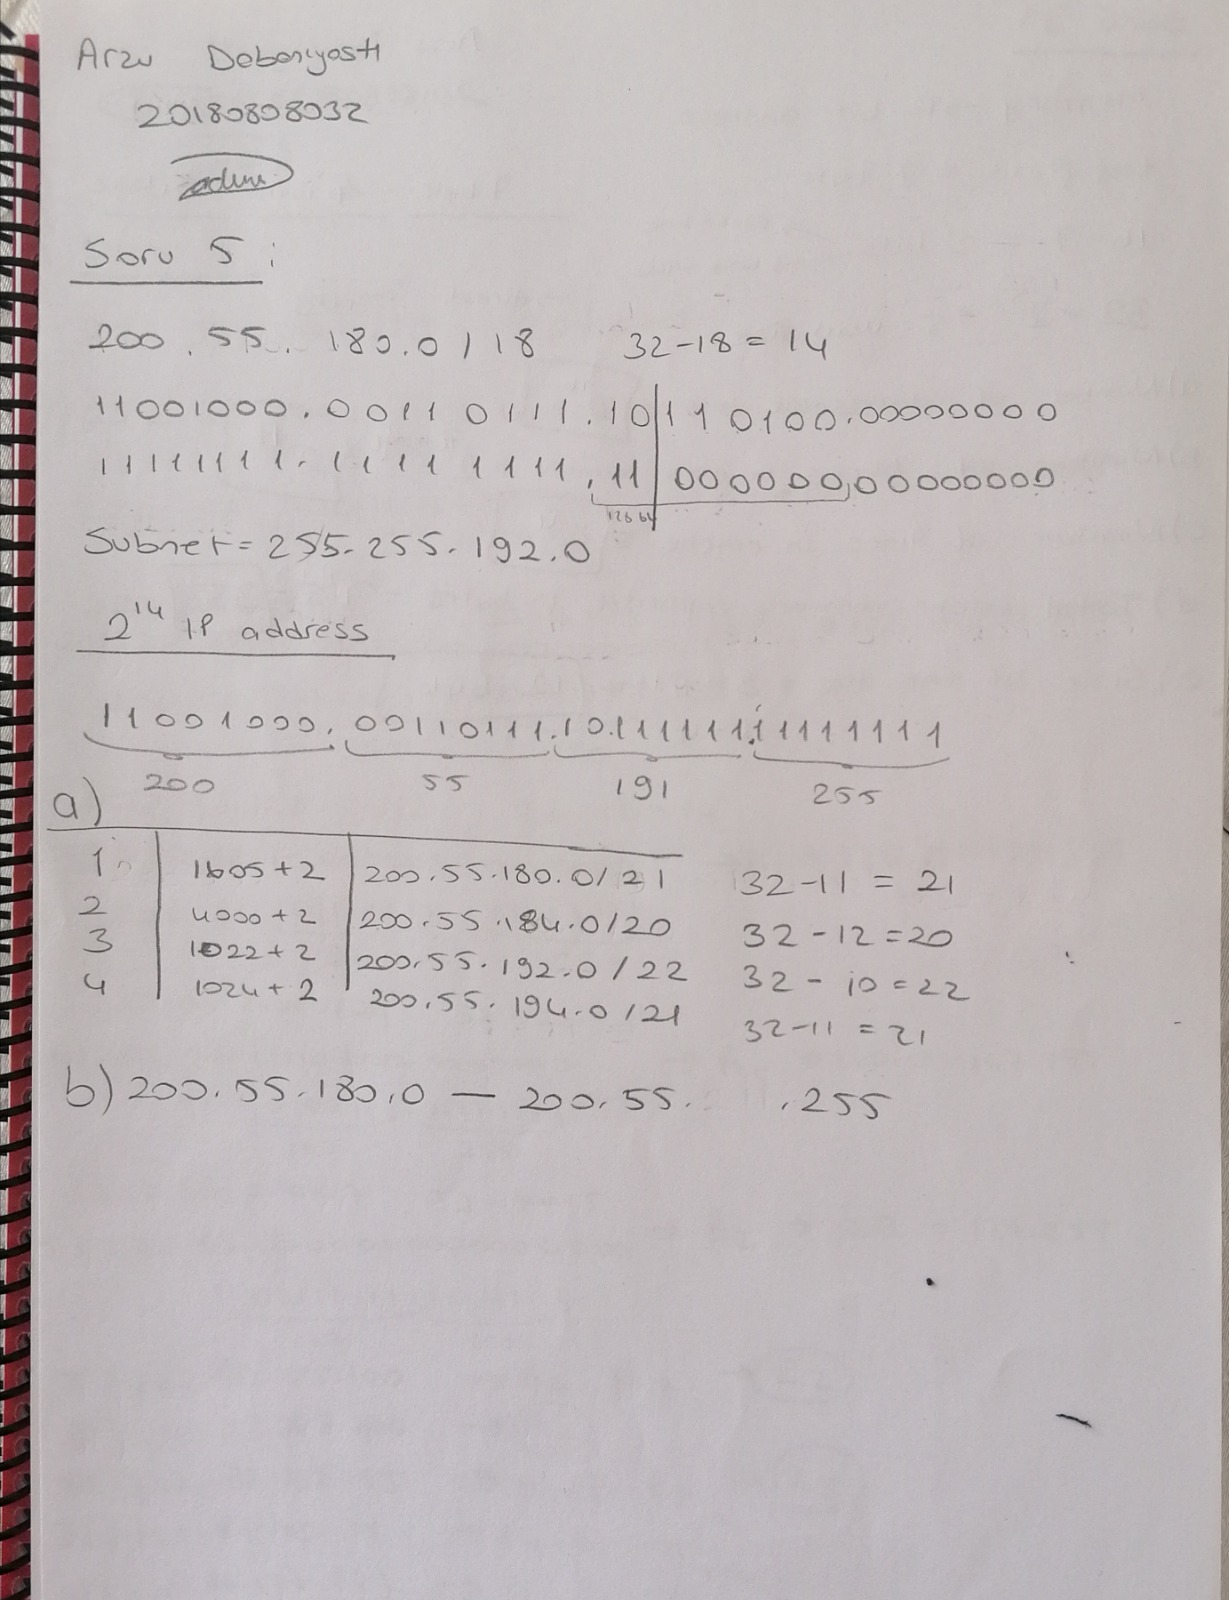 Arzu
20180808032
Soru 5 :
200.55.180.0/18 32-18=14
11001000.00110111.10|110100.00000000
11111111.11111111.11|000000.00000000
128 64
Subnet=255.255.192.0
2^14 IP address
11001000.00110111.10.111111.11111111
200 55 191 255
a)
1 1605+2 200.55.180.0/21 32-11=21
2 4000+2 200.55.184.0/20 32-12=20
3 1022+2 200.55.192.0/22 32-10=22
4 1024+2 200.55.194.0/21 32-11=21
b) 200.55.180.0 — 200.55. .255